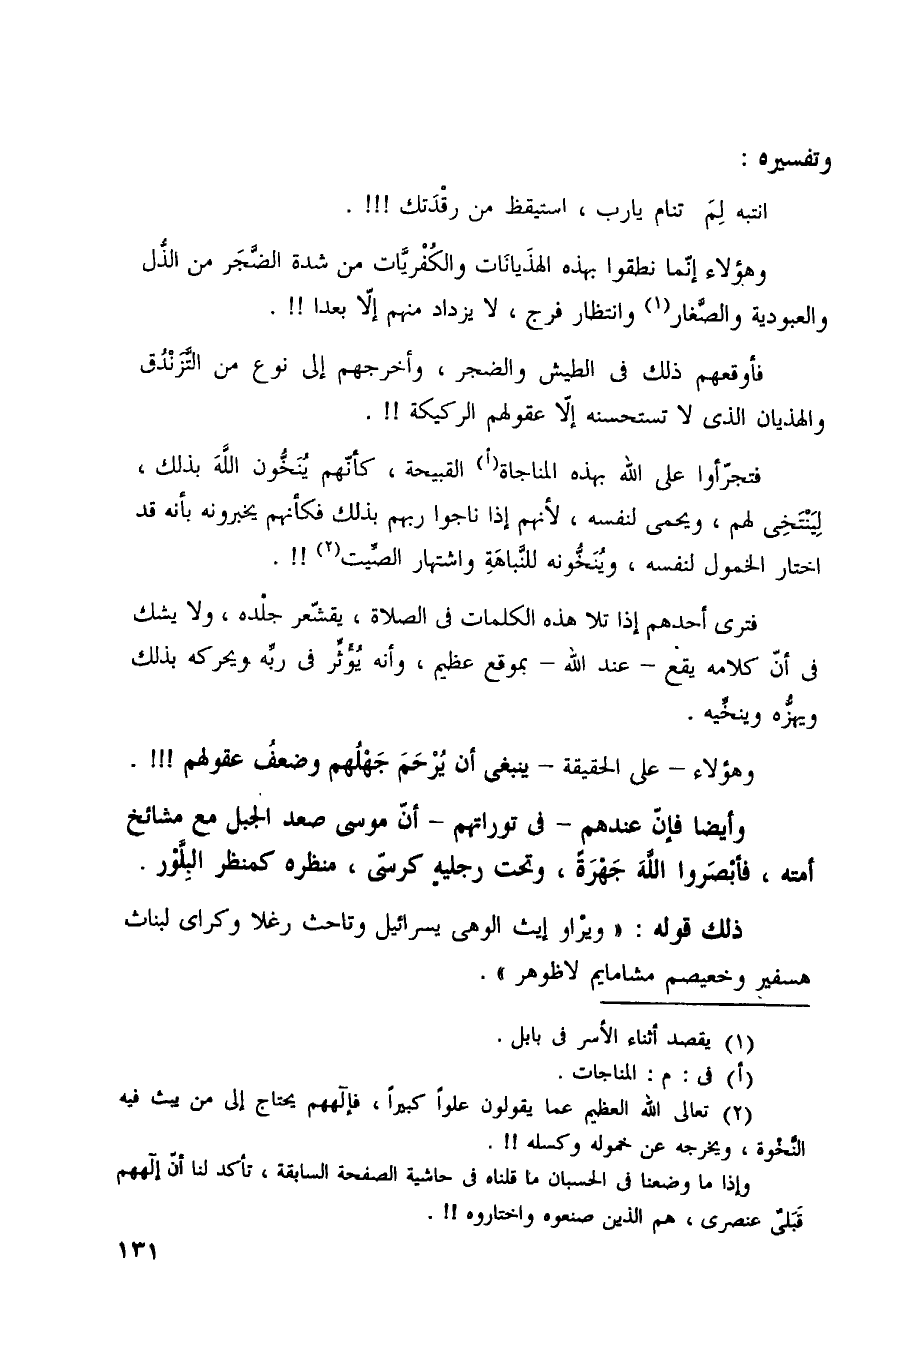 وتفسيره :
انتبه لِمَ تنام يارب ، استيقظ من رقْدَتك !!! .
وهؤلاء إنّما نطقوا بهذه الهذَيانَات والكُفْريَّات من شدة الضَّجَر من الذُّل
والعبودية والصَّغار(١) وانتظار فرج ، لا يزداد منهم إلّا بعدا !! .
فأوقعهم ذلك فى الطيش والضجر ، وأخرجهم إلى نوع من التَّزَنْدُق
والهذيان الذى لا تستحسنه إلّا عقولهم الركيكة !! .
فتجرّأوا على الله بهذه المناجاة(أ) القبيحة ، كأنّهم يُنَخُّون اللَّهَ بذلك ،
لِيَنْتَخِى لهم ، ويحمى لنفسه ، لأنهم إذا ناجوا ربهم بذلك فكأنهم يخبرونه بأنه قد
اختار الخمول لنفسه ، ويُنَخُّونه للنَّباهَةِ واشتهار الصِّيت(٢) !! .
فترى أحدهم إذا تلا هذه الكلمات فى الصلاة ، يقشّعر جلْده ، ولا يشك
فى أنّ كلامه يقع – عند الله – بموقع عظيم ، وأنه يُؤثِّر فى ربِّه ويحركه بذلك
ويهزُّه وينخِّيه .
وهؤلاء – على الحقيقة – ينبغى أن يُرْحَمَ جَهْلُهم وضعفُ عقولهم !!! .
وأيضا فإنّ عندهم – فى توراتهم – أنّ موسى صعد الجبل مع مشائخ
أمته ، فأبْصَروا اللَّهَ جَهْرَةً ، وتحت رجليه كرسىّ ، منظره كمنظر البِلَّوْر .
ذلك قوله : « ويرْاو إيث الوهى يسرائيل وتاحث رغلا وكراى لبناث
هسفير وخعيصم مشامايم لاظوهر » .
(١) يقصد أثناء الأسر فى بابل .
(أ) فى : م : المناجات .
(٢) تعالى الله العظيم عما يقولون علواً كبيراً ، فإلٰههم يحتاج إلى من يبث فيه
النَّخْوة ، ويخرجه عن خموله وكسله !! .
وإذا ما وضعنا فى الحسبان ما قلناه فى حاشية الصفحة السابقة ، تأكد لنا أنّ إلٰههم
قَبَلىّ عنصرى ، هم الذين صنعوه واختاروه !! .
١٣١